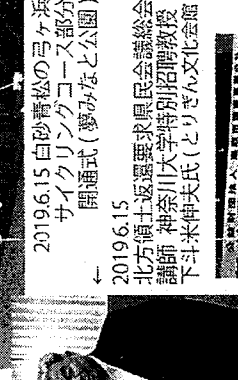 2019.6.15 白砂青松の弓ヶ浜
サイクリングコース部分
開通式(夢みなと公園)
←
2019.6.15
北方領土返還要求県民会議総会
講師 神奈川大学特別招聘教授
下斗米伸夫氏(とりぎん文化会館